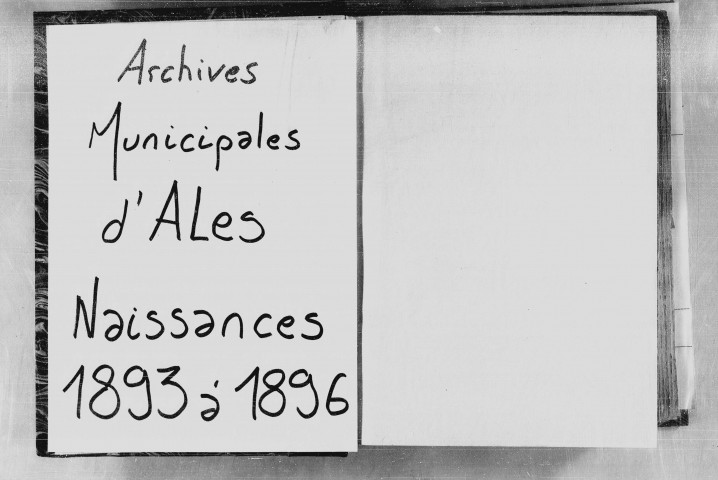 Archives
Municipales
d'ALes
Naissances
1893 à 1896